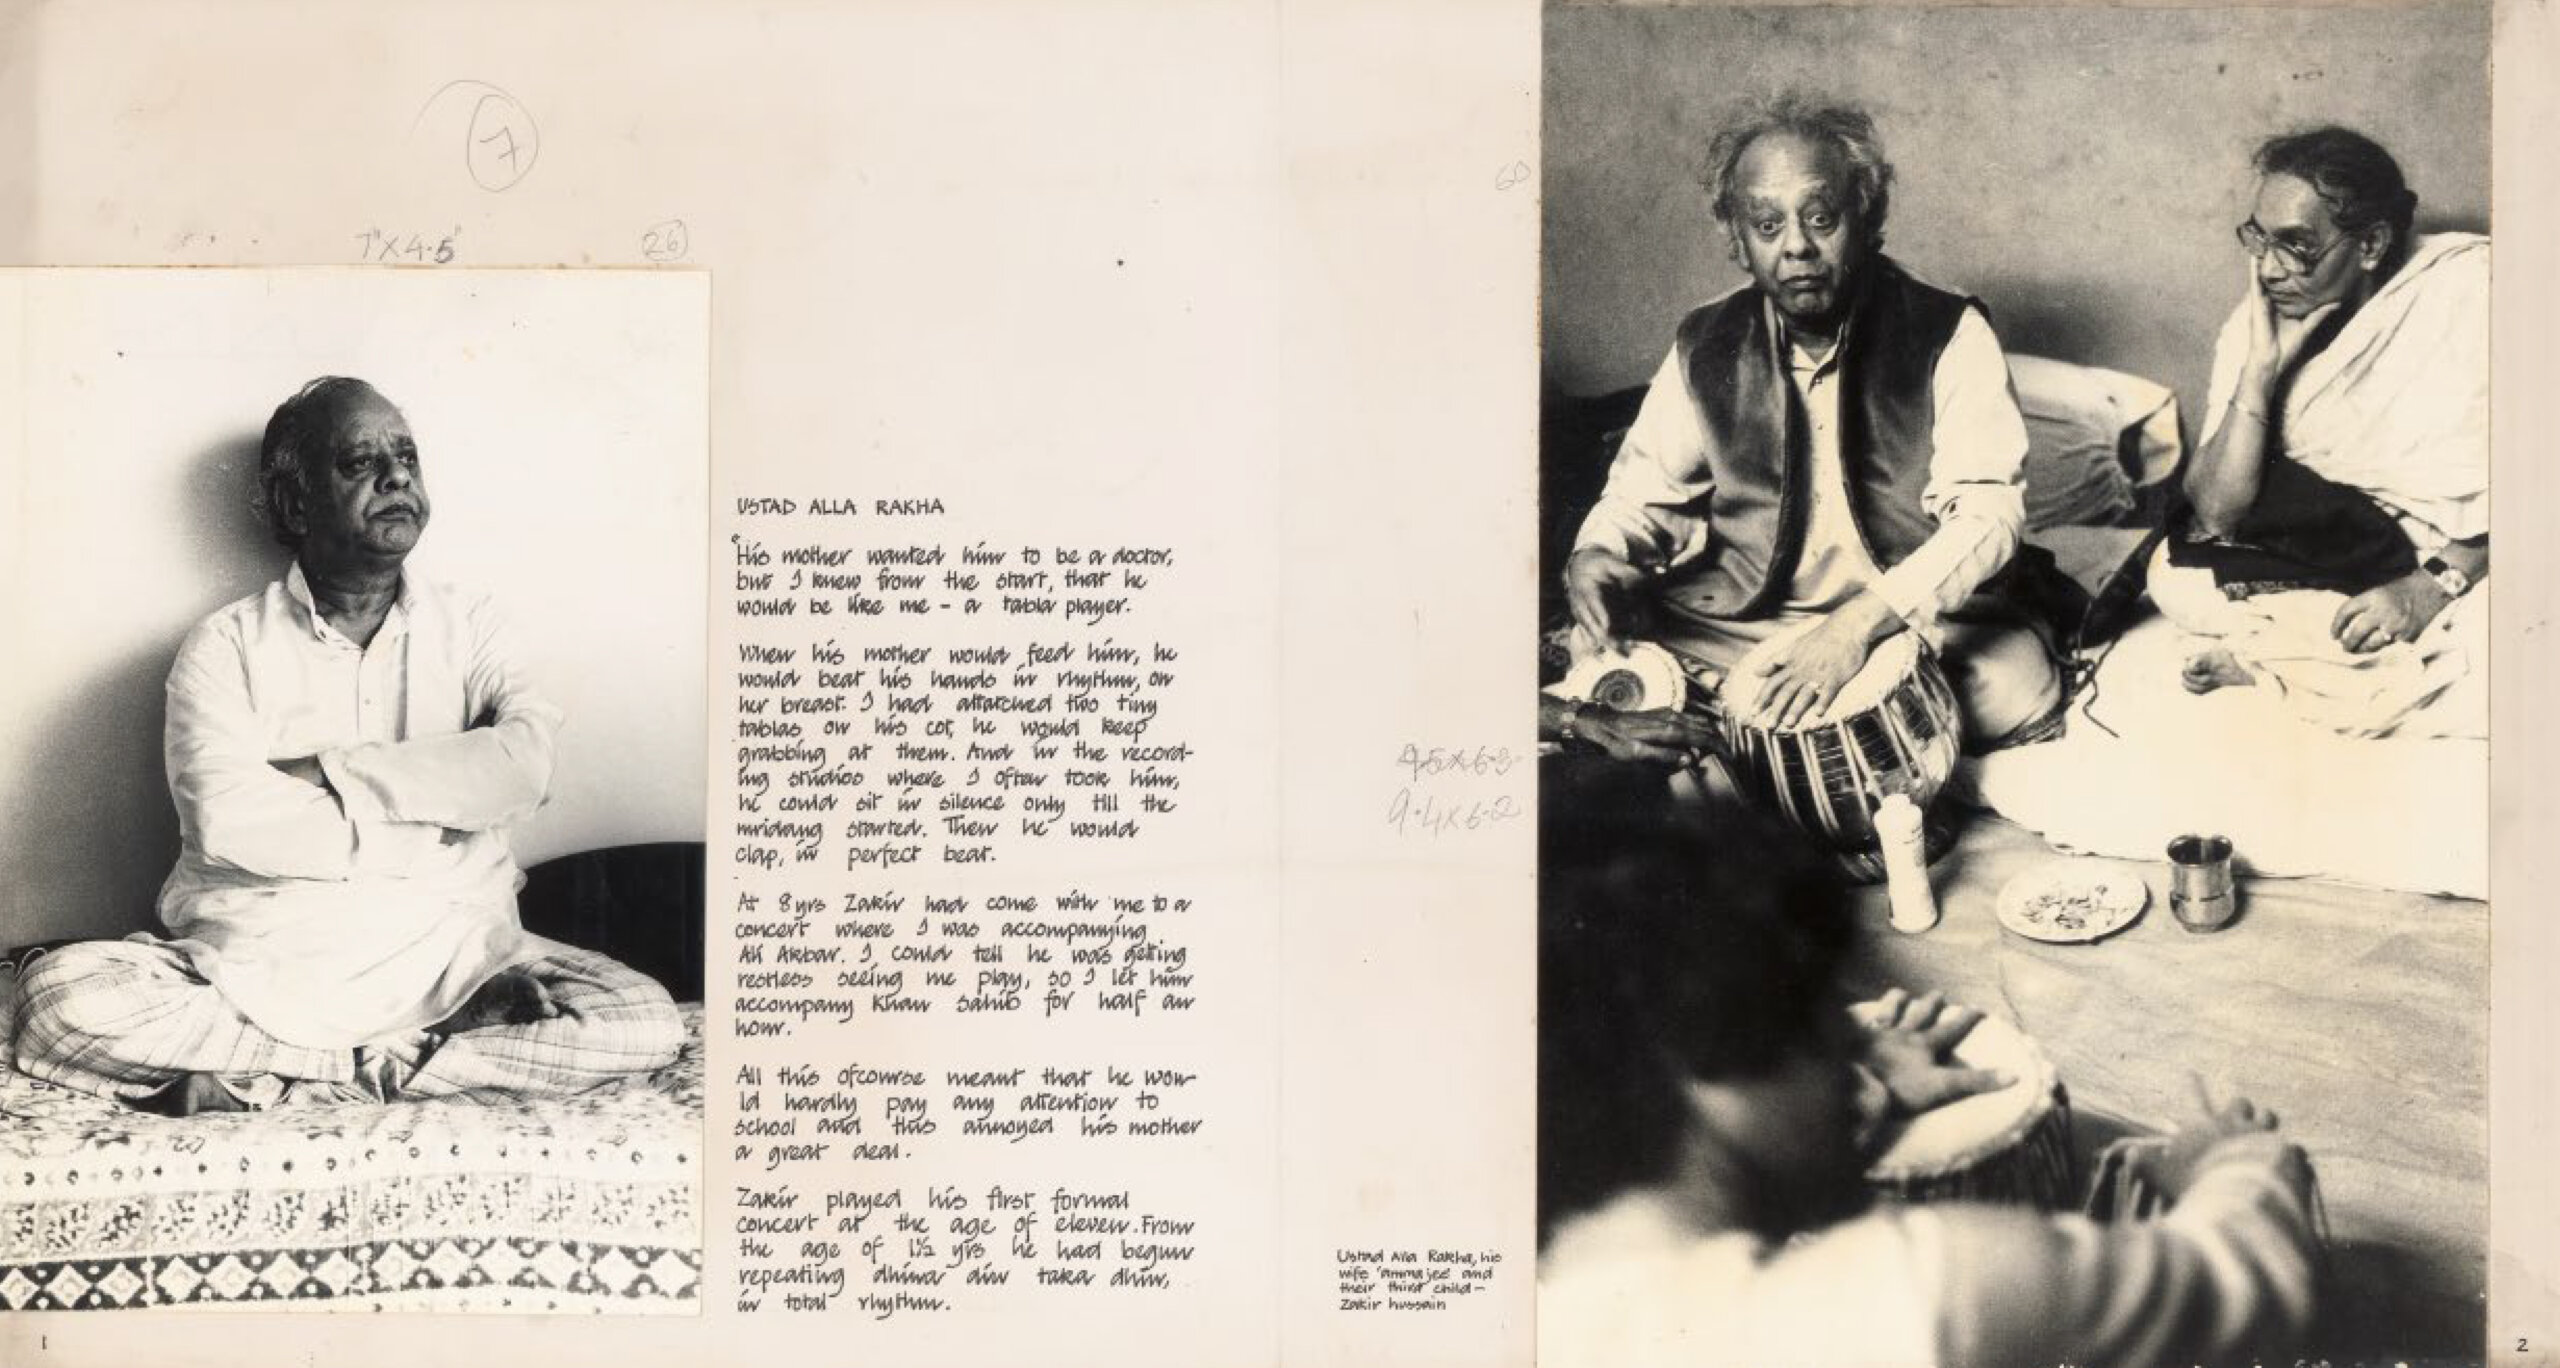 7
7"X4.5"
26
60
USTAD ALLA RAKHA
"His mother wanted him to be a doctor,
but I knew from the start, that he
would be like me - a tabla player.
When his mother would feed him, he
would beat his hands in rhythm, on
her breast. I had attatched two tiny
tablas on his cot, he would keep
grabbing at them. And in the record-
ing studios where I often took him,
he could sit in silence only till the
mridang started. Then he would
clap, in perfect beat.
At 8 yrs Zakir had come with me to a
concert where I was accompanying
Ali Akbar. I could tell he was getting
restless seeing me play, so I let him
accompany Khan Sahib for half an
hour.
All this ofcourse meant that he wou-
ld hardly pay any attention to
school and this annoyed his mother
a great deal.
Zakir played his first formal
concert at the age of eleven. From
the age of 1½ yrs he had begun
repeating dhina din taka dhin,
in total rhythm.
9.4x6.2
Ustad Alla Rakha, his
wife 'ammajee' and
their third child -
Zakir hussain
1
2